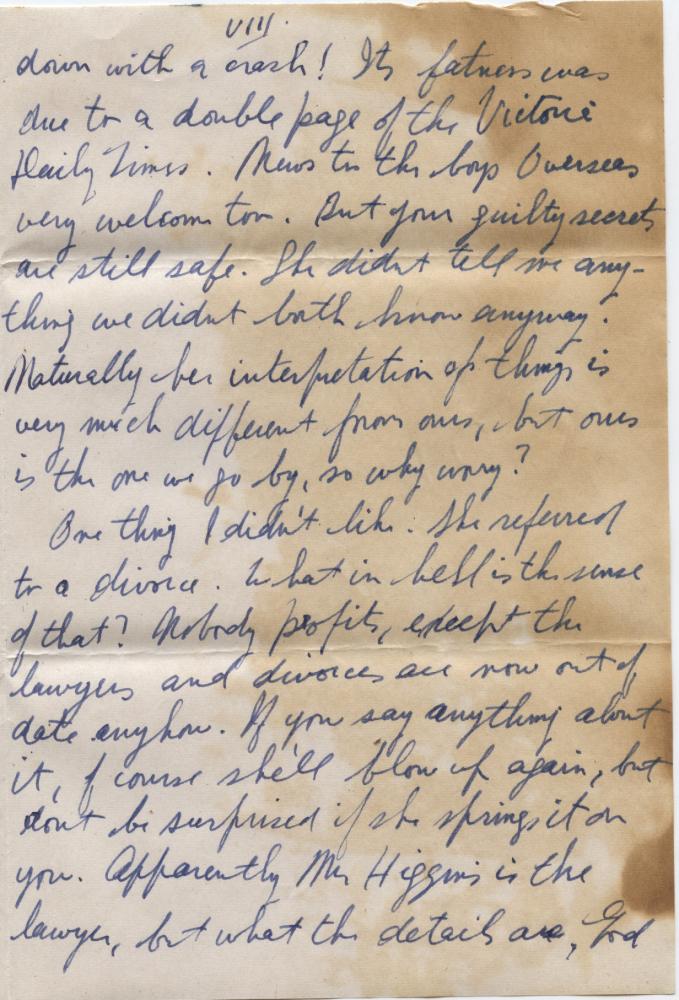 VIII.
down with a crash! Its fatness was
due to a double page of the Victoria
Daily Times. News to the boys Overseas
very welcome too. But your guilty secrets
are still safe. She didnt tell me any-
thing we didnt both know anyway!
Naturally her interpretation of things is
very much different from ours, but ours
is the one we go by, so why worry?
One thing I didn't like. She referred
to a divorce. What in hell is the sense
of that? Nobody profits, except the
lawyers and divorces are now out of
date anyhow. If you say anything about
it, of course she'll blow up again, but
dont be surprised if she springs it on
you. Apparently Mr Higgins is the
lawyer, but what the details are, God